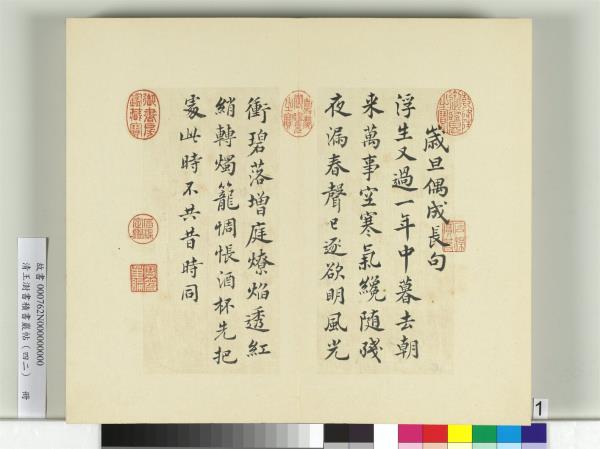 歲旦偶成長句
浮生又過一年中暮去朝
来萬事空寒氣纔随殘
夜漏春聲已逐欲明風光
衝碧落增庭燎焰透紅
綃轉燭籠惆悵酒杯先把
處此時不共昔時同
嘉慶御覽之寶
御書房鑑藏寶
故書 000762N000000000
清王澍書積書巖帖（四二） 冊
1